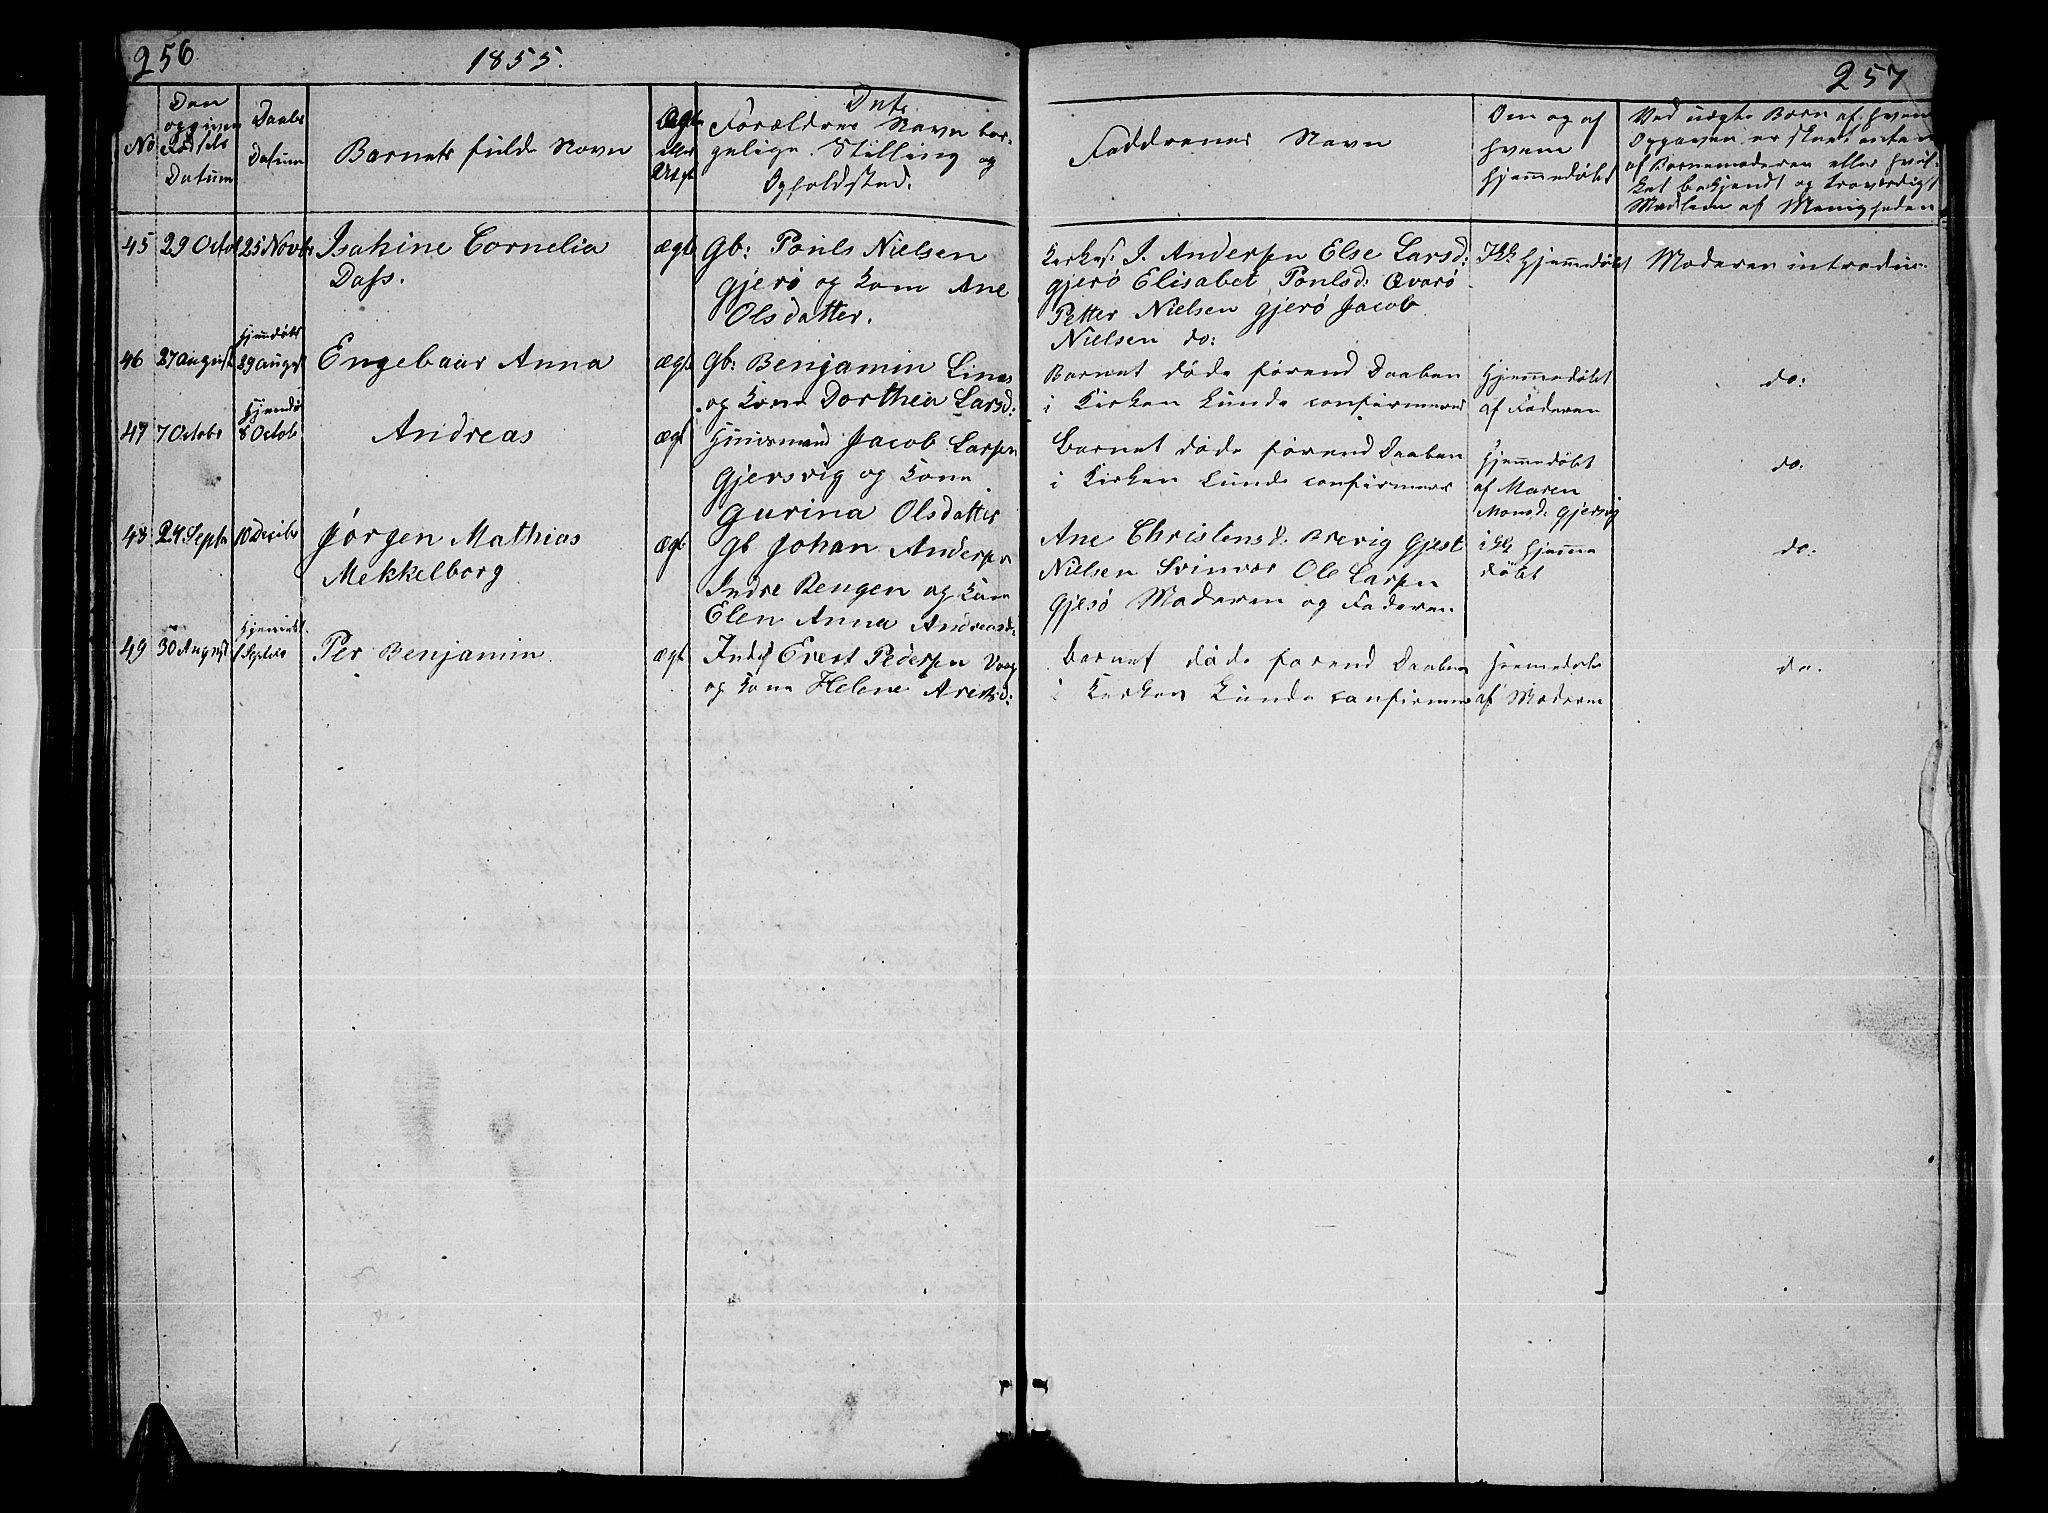 256
1855.
257
No
Den opgivne Fødsels Datum
Daabs Datum
Barnets fulde Navn
Ægte eller Uægt
Dets Forældres Navn borgelige Stilling og Opholdsted.
Faddrenes Navn
Om og af hvem hjemmedøbt
Ved uægte Børn af hvem Opgaven er skeet enten af Barnemoderen eller hvilket bekjendt og troværdigt Medlem af Menigheden
45 29 Octob 25 Novbr Isakine Cornelia
Dass.
ægt
Gb: Pouls Nielsen
Gjerø og Kone Ane
Olsdatter.
Kirkes. J. Andersen Else Larsd:
Gjerø Elisabet Poulsd: Qvarø
Petter Nielsen Gjerø Jacob
Nielsen do:
Ikk Hjemmedøbt
Moderen introdu:
46 27 August
Hjemdøbt
29 August
Engebaar Anna
ægt
Gb: Benjamin
og Kone Dorthea Larsd:
Barnet døde førend Daaben
i Kirken kunde confirmeres
Hjemmedøbt
af Faderen
do:
47 7 Octobr
Hjemdø
8 Octob
Andreas
ægt
Huusmand Jacob Larsen
Gjersvig og Kone
Gurina Olsdatter
Barnet døde førend Daaben
i Kirken kunde confirmeres
Hjemmedøbt
af Maren
Monsd: Gjersvig
do:
48 24 Septr 10 Decibr Jørgen Mathias
Mekkelborg
ægt
Gb Johan Andersen
Indre Rengen og Kone
Elen Anna Andreasd:
Ane Christensd: Brevig Gjest
Nielsen Svinvær Ole Larsen
Gjesø Moderen og Faderen
ikk Hjemme
døbt
do:
49 30 August
Hjemdøbt
1 Septbr
Per Benjamin.
ægt
Inds Erest Pedersen Vaag
og Kone Helene
Barnet døde førend Daaben
i Kirken kunde confirmeres
Hjemmedøbt
af Moderen
do.